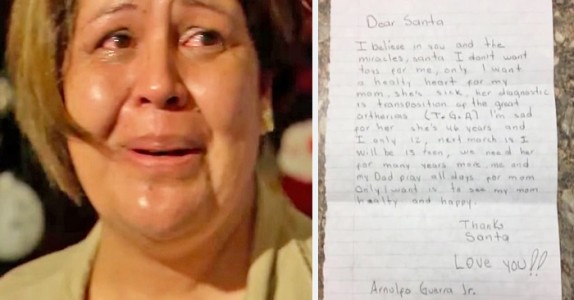 Dear Santa
I believe in you and the
miracles, santa I don't want
toys for me, only I want
a healty heart for my
mom, she's sick, her diagnostic
is transposition of the great
artherims. (T.G.A) I'm sad
for her she's 46 years and
I only 12, next march is I
will be 13 teen, we need her
for many years more, me and
my Dad pray all days for mom
Only I want is to see my mom
healty and happy.
Thanks
Santa
Love you!!
Arnulfo Guerra Jr.